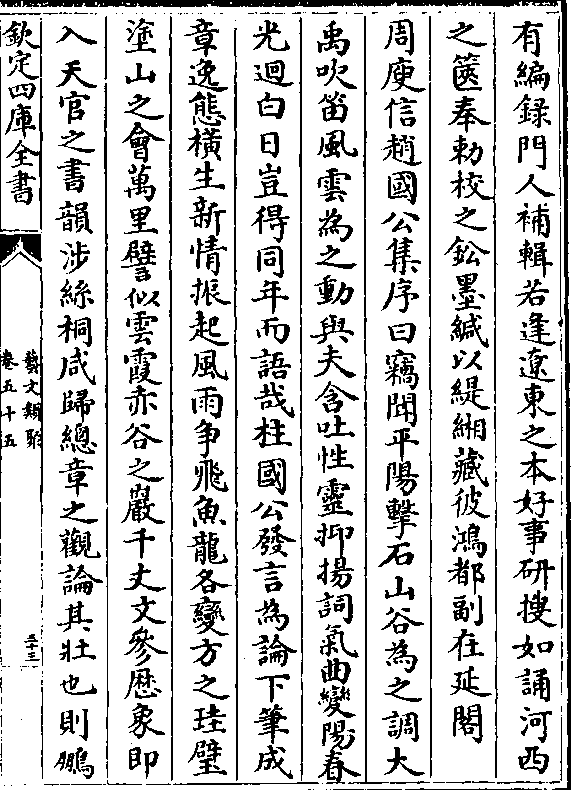 有編録門人補輯若逢遼東之本好事研搜如誦河西
之篋奉勅校之鈆墨緘以緹緗藏彼鴻都副在延閣
周庾信趙國公集序曰竊聞平陽擊石山谷為之調大
禹吹笛風雲為之動與夫含吐性靈抑揚詞氣曲變陽春
光迴白日豈得同年而語哉柱國公發言為論下筆成
章逸態横生新情振起風雨争飛魚龍各變方之珪璧
塗山之會萬里譬似雲霞赤谷之巖千丈文參歴象即
入天官之書韻涉絲桐咸歸總章之觀論其壯也則鵬
欽定四庫全書
藝文類聚
卷五十五
三十三